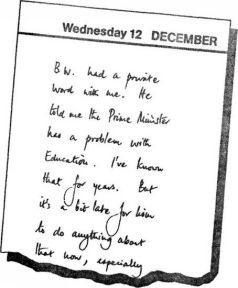 Wednesday 12 DECEMBER
B W. had a private
word with me. He
told me the Prime Minister
has a problem with
Education. I've known
that for years. But
it's a bit late for him
to do anything about
that now, especially